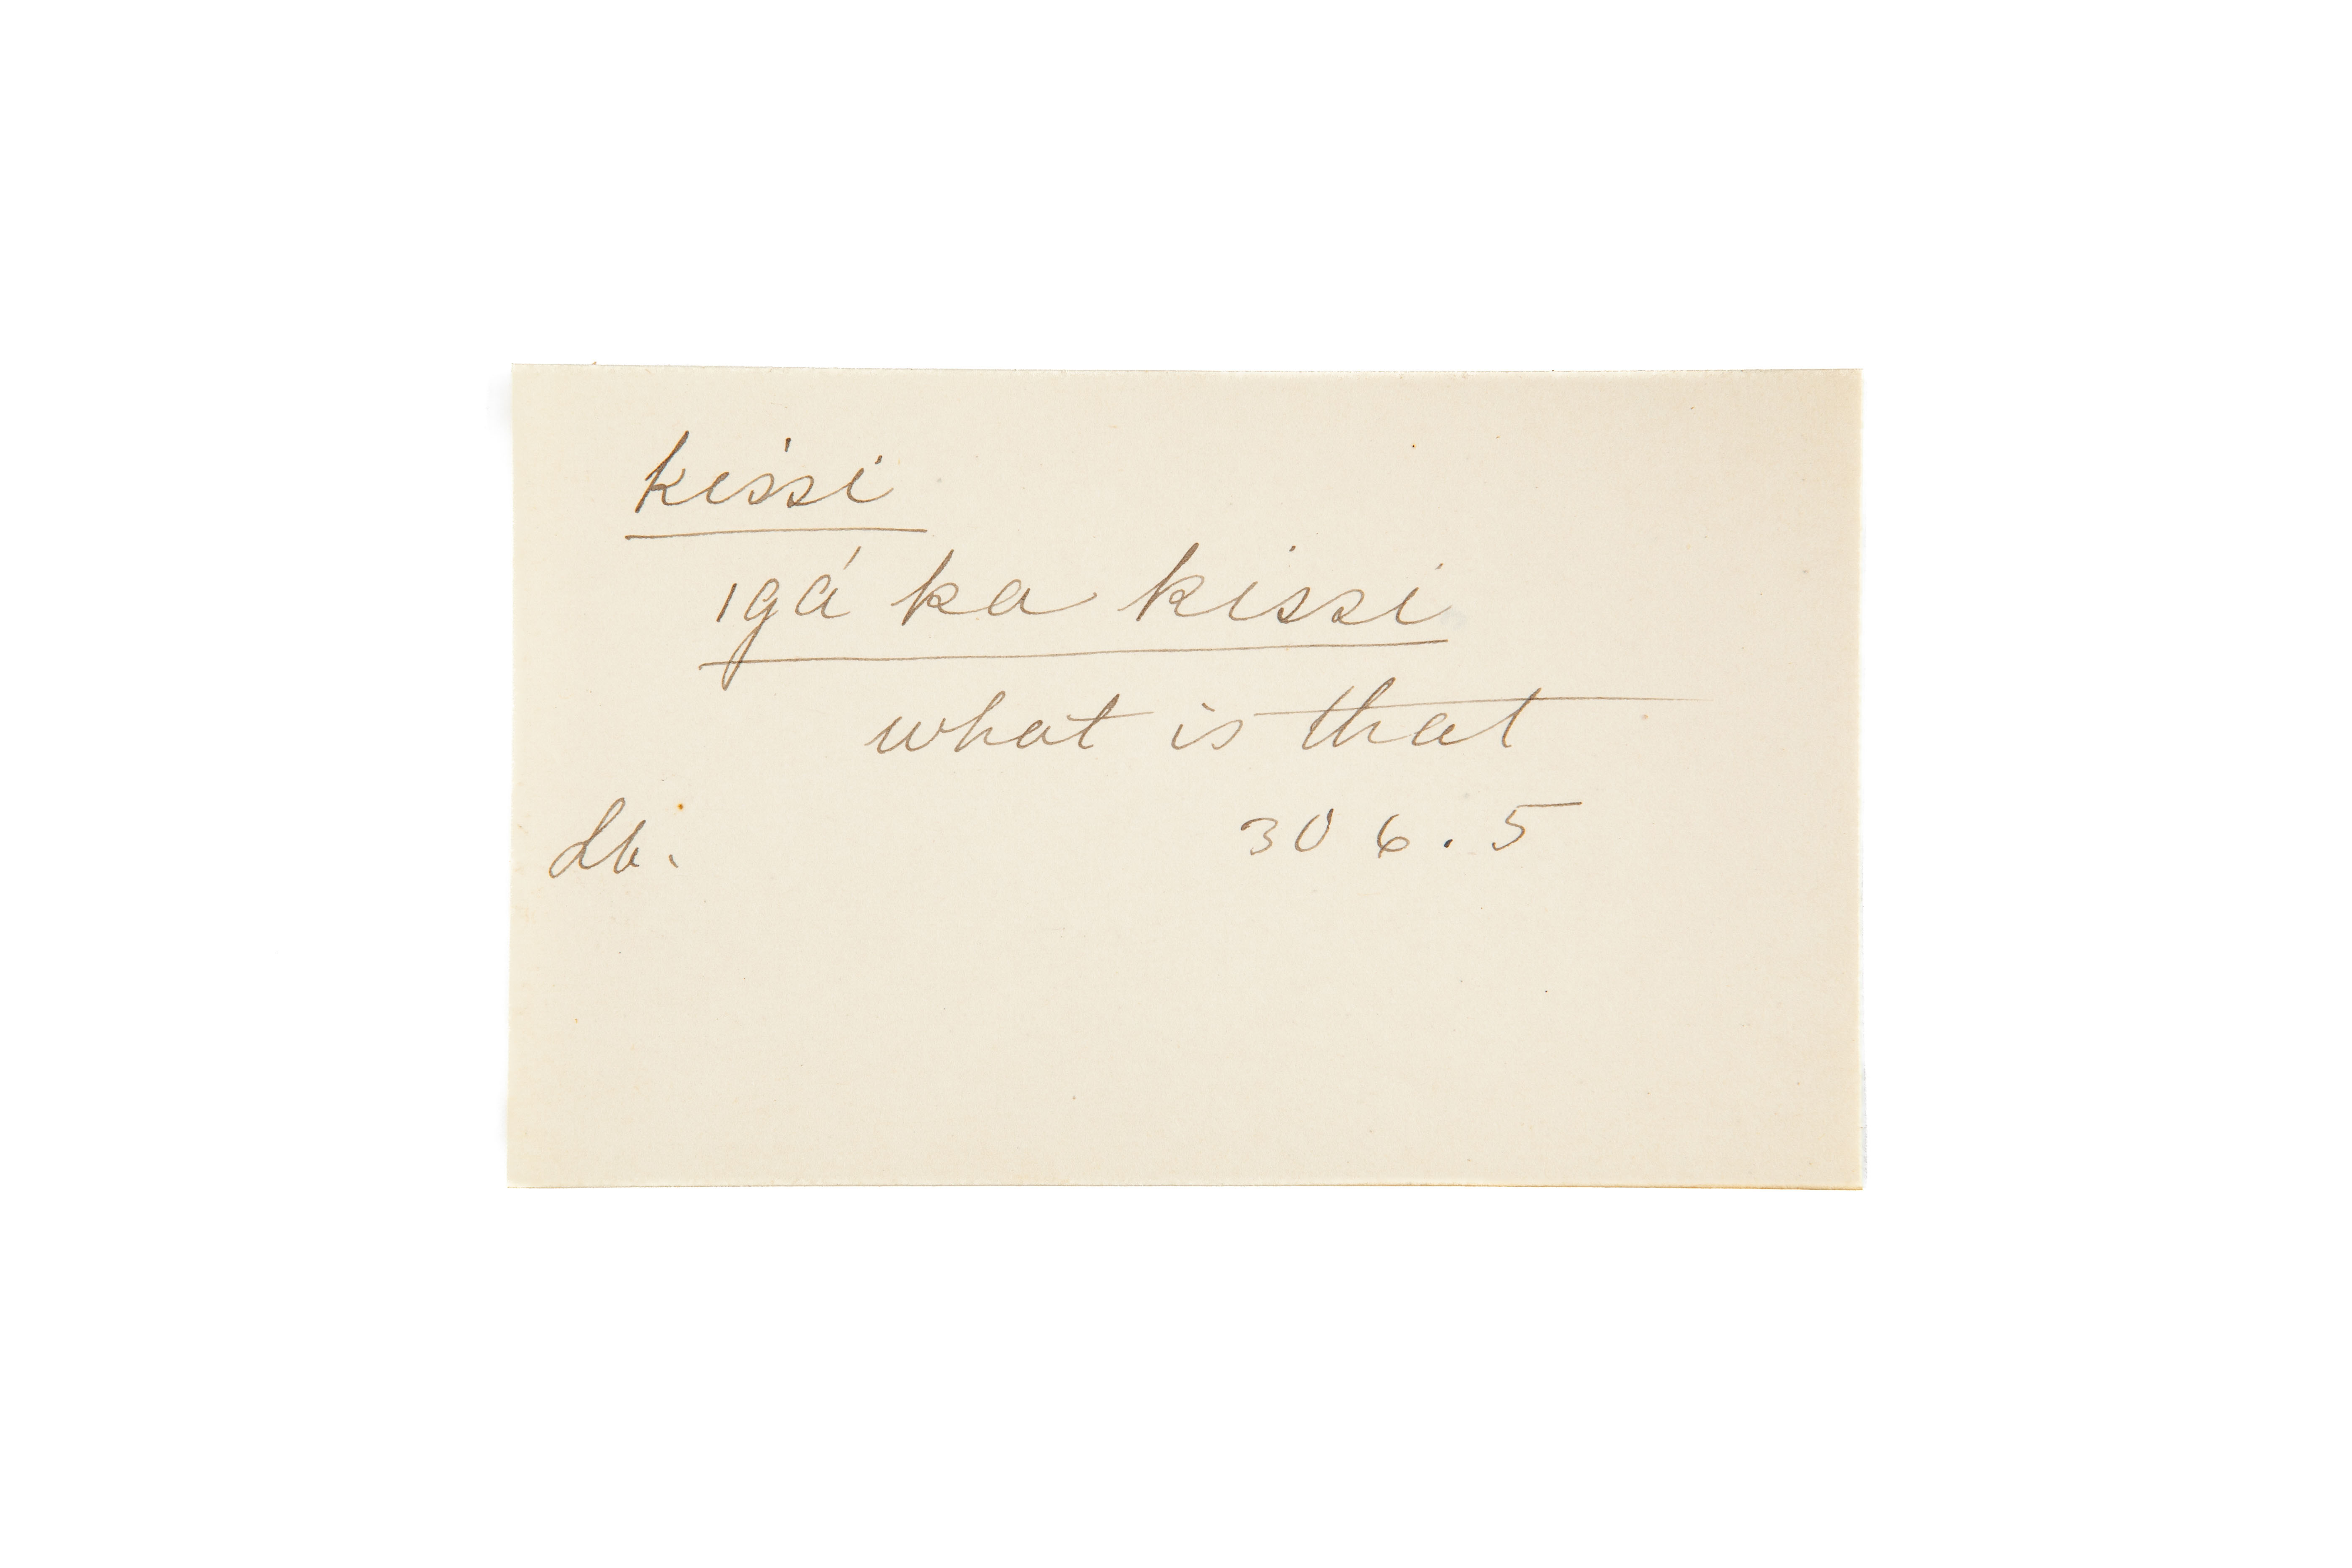 kissi
igá ka kissi
what is that
306.5